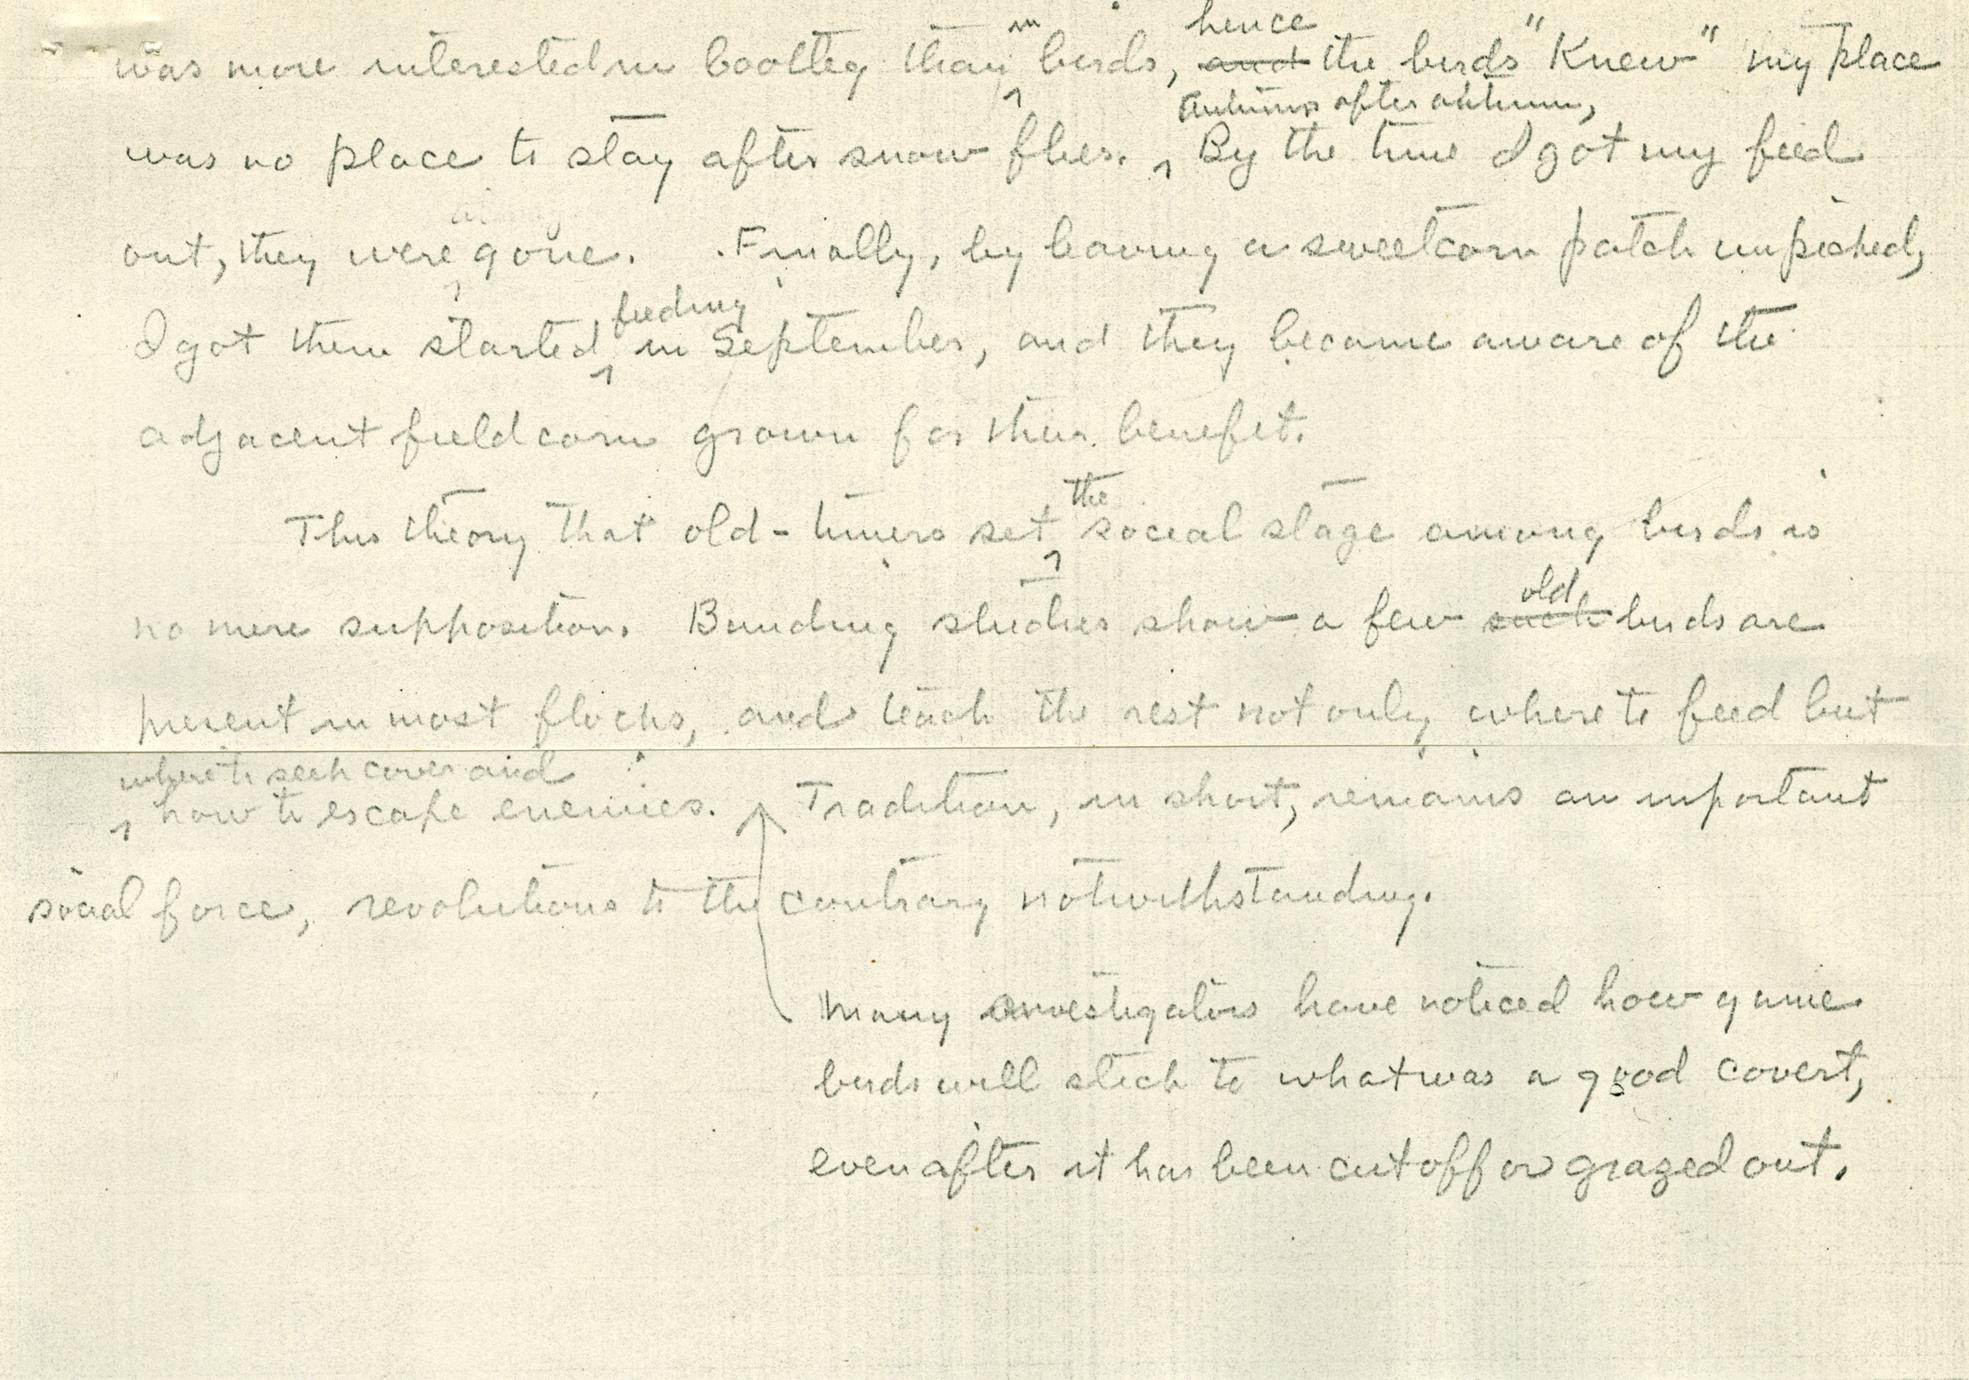 in hence
was more interested in bootleg than birds, and the birds "Knew" my place
autumn after autumn,
was no place to stay after snow flies. By the time I got my feed
out, they were gone. Finally, by leaving a sweetcorn patch unpicked,
feeding
I got them started in September, and they became aware of the
adjacent field corn grown for their benefit.
the
This theory that old-timers set social stage among birds is
old
no mere supposition. Banding studies show a few such birds are
present in most flocks, and teach the rest not only where to feed but
where to seek cover and
how to escape enemies. Tradition, in short, remains an important
social force, revolutions to the contrary notwithstanding.
Many investigators have noticed how game
birds will stick to what was a good covert,
even after it has been cut off or grazed out.